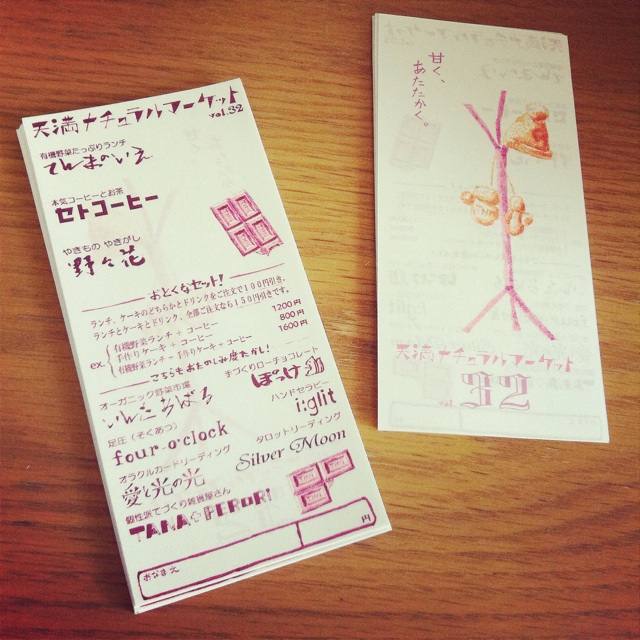 天満ナチュラルマーケット
vol.32
有機野菜たっぷりランチ
てんまのいえ
本気コーヒーとお茶
セトコーヒー
やきもの やきがし
野々花
おとくなセット!
ランチ、ケーキのどちらかとドリンクをご注文で100円引き。
ランチとケーキとドリンク、全部ご注文なら150円引きです。
ex.
有機野菜ランチ + コーヒー 1200円
手作りケーキ + コーヒー 800円
有機野菜ランチ + 手作りケーキ + コーヒー 1600円
こちらもおたのしみ度たかし!
オーガニック野菜市場
手づくりローチョコレート
ぽっけ
足圧(そくあつ)
four-o'clock
ハンドセラピー
i:glit
オラクルカードリーディング
愛と光の光
タロットリーディング
Silver Moon
個性派てづくり雑貨屋さん
TANA☆PERORI
おなまえ
円
甘く、
あたたかく。
天満ナチュラルマーケット
32